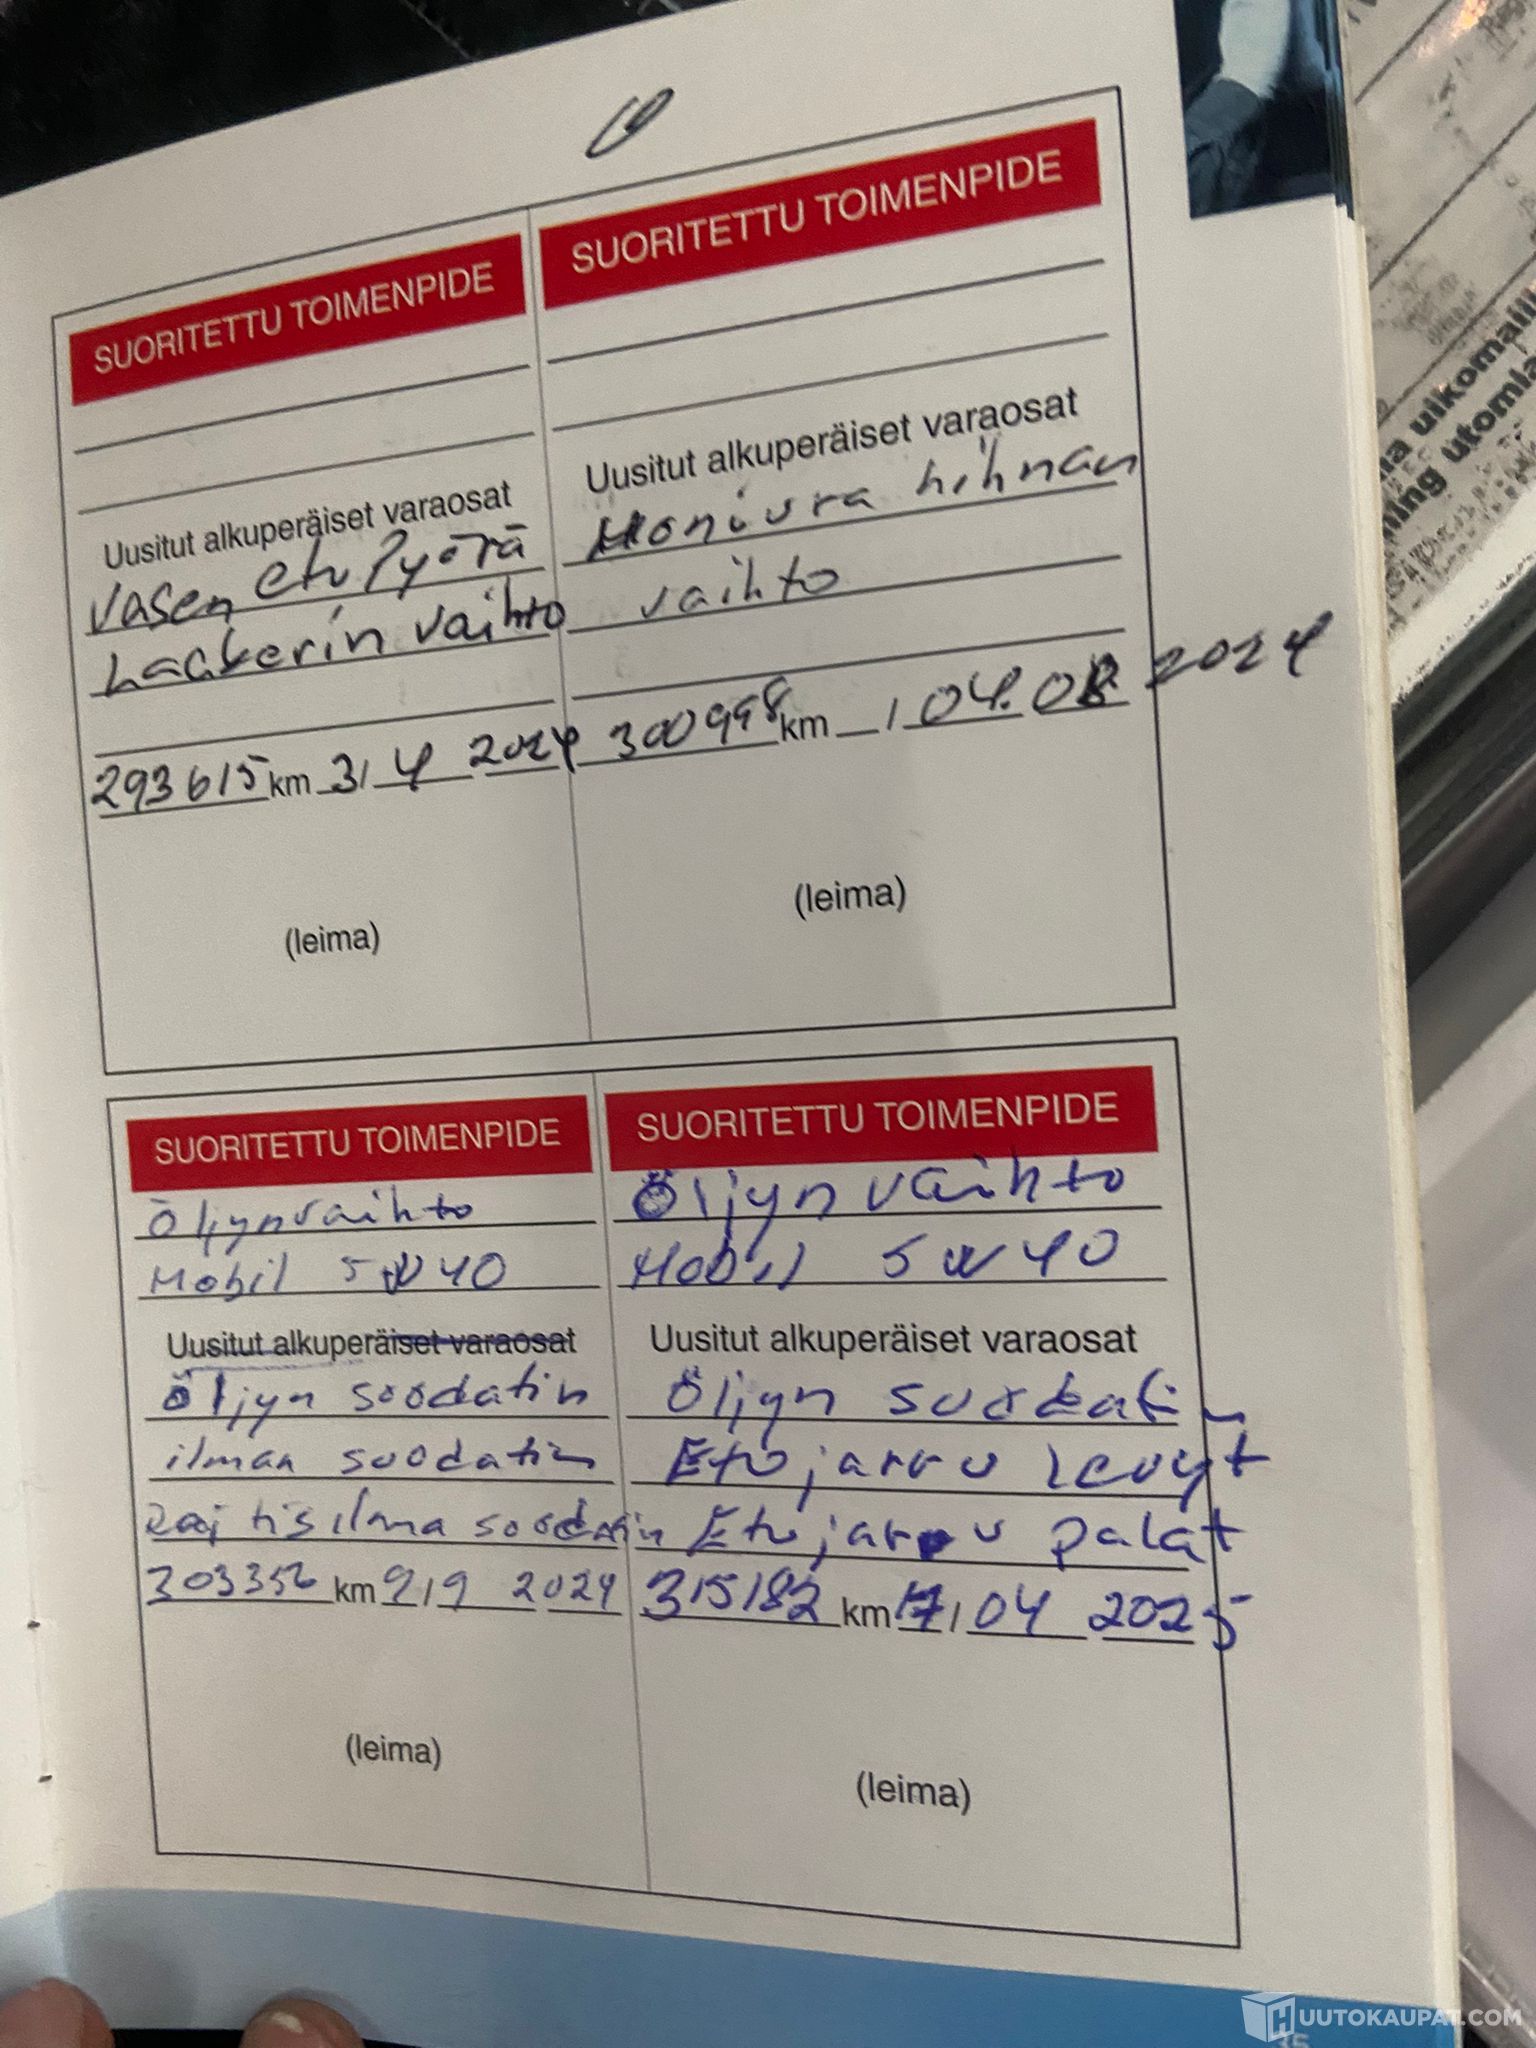 SUORITETTU TOIMENPIDE
Uusitut alkuperäiset varaosat
Vasen etu Pyörä
Laakerin vaihto
293615 km 3/4 2024
(leima)
SUORITETTU TOIMENPIDE
Uusitut alkuperäiset varaosat
Moniura hihnan
vaihto
300998 km / 04.08 2024
(leima)
SUORITETTU TOIMENPIDE
Öljynvaihto
Mobil 5W40
Uusitut alkuperäiset varaosat
Öljyn suodatin
ilman suodatin
Raitisilma suodatin
303356 km 9/9 2024
(leima)
SUORITETTU TOIMENPIDE
Öljyn vaihto
Mobil 5W40
Uusitut alkuperäiset varaosat
Öljyn suodatin
Etujarru levyt
Etujarru palat
315182 km 17/04 2025
(leima)
ulkomaill
ning utomla
HUUTOKAUPAT.COM